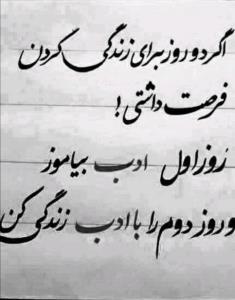 اگر دو روز برای زندگی کردن
فرصت داشتی!
روز اول ادب بیاموز
و روز دوم را با ادب زندگی کن